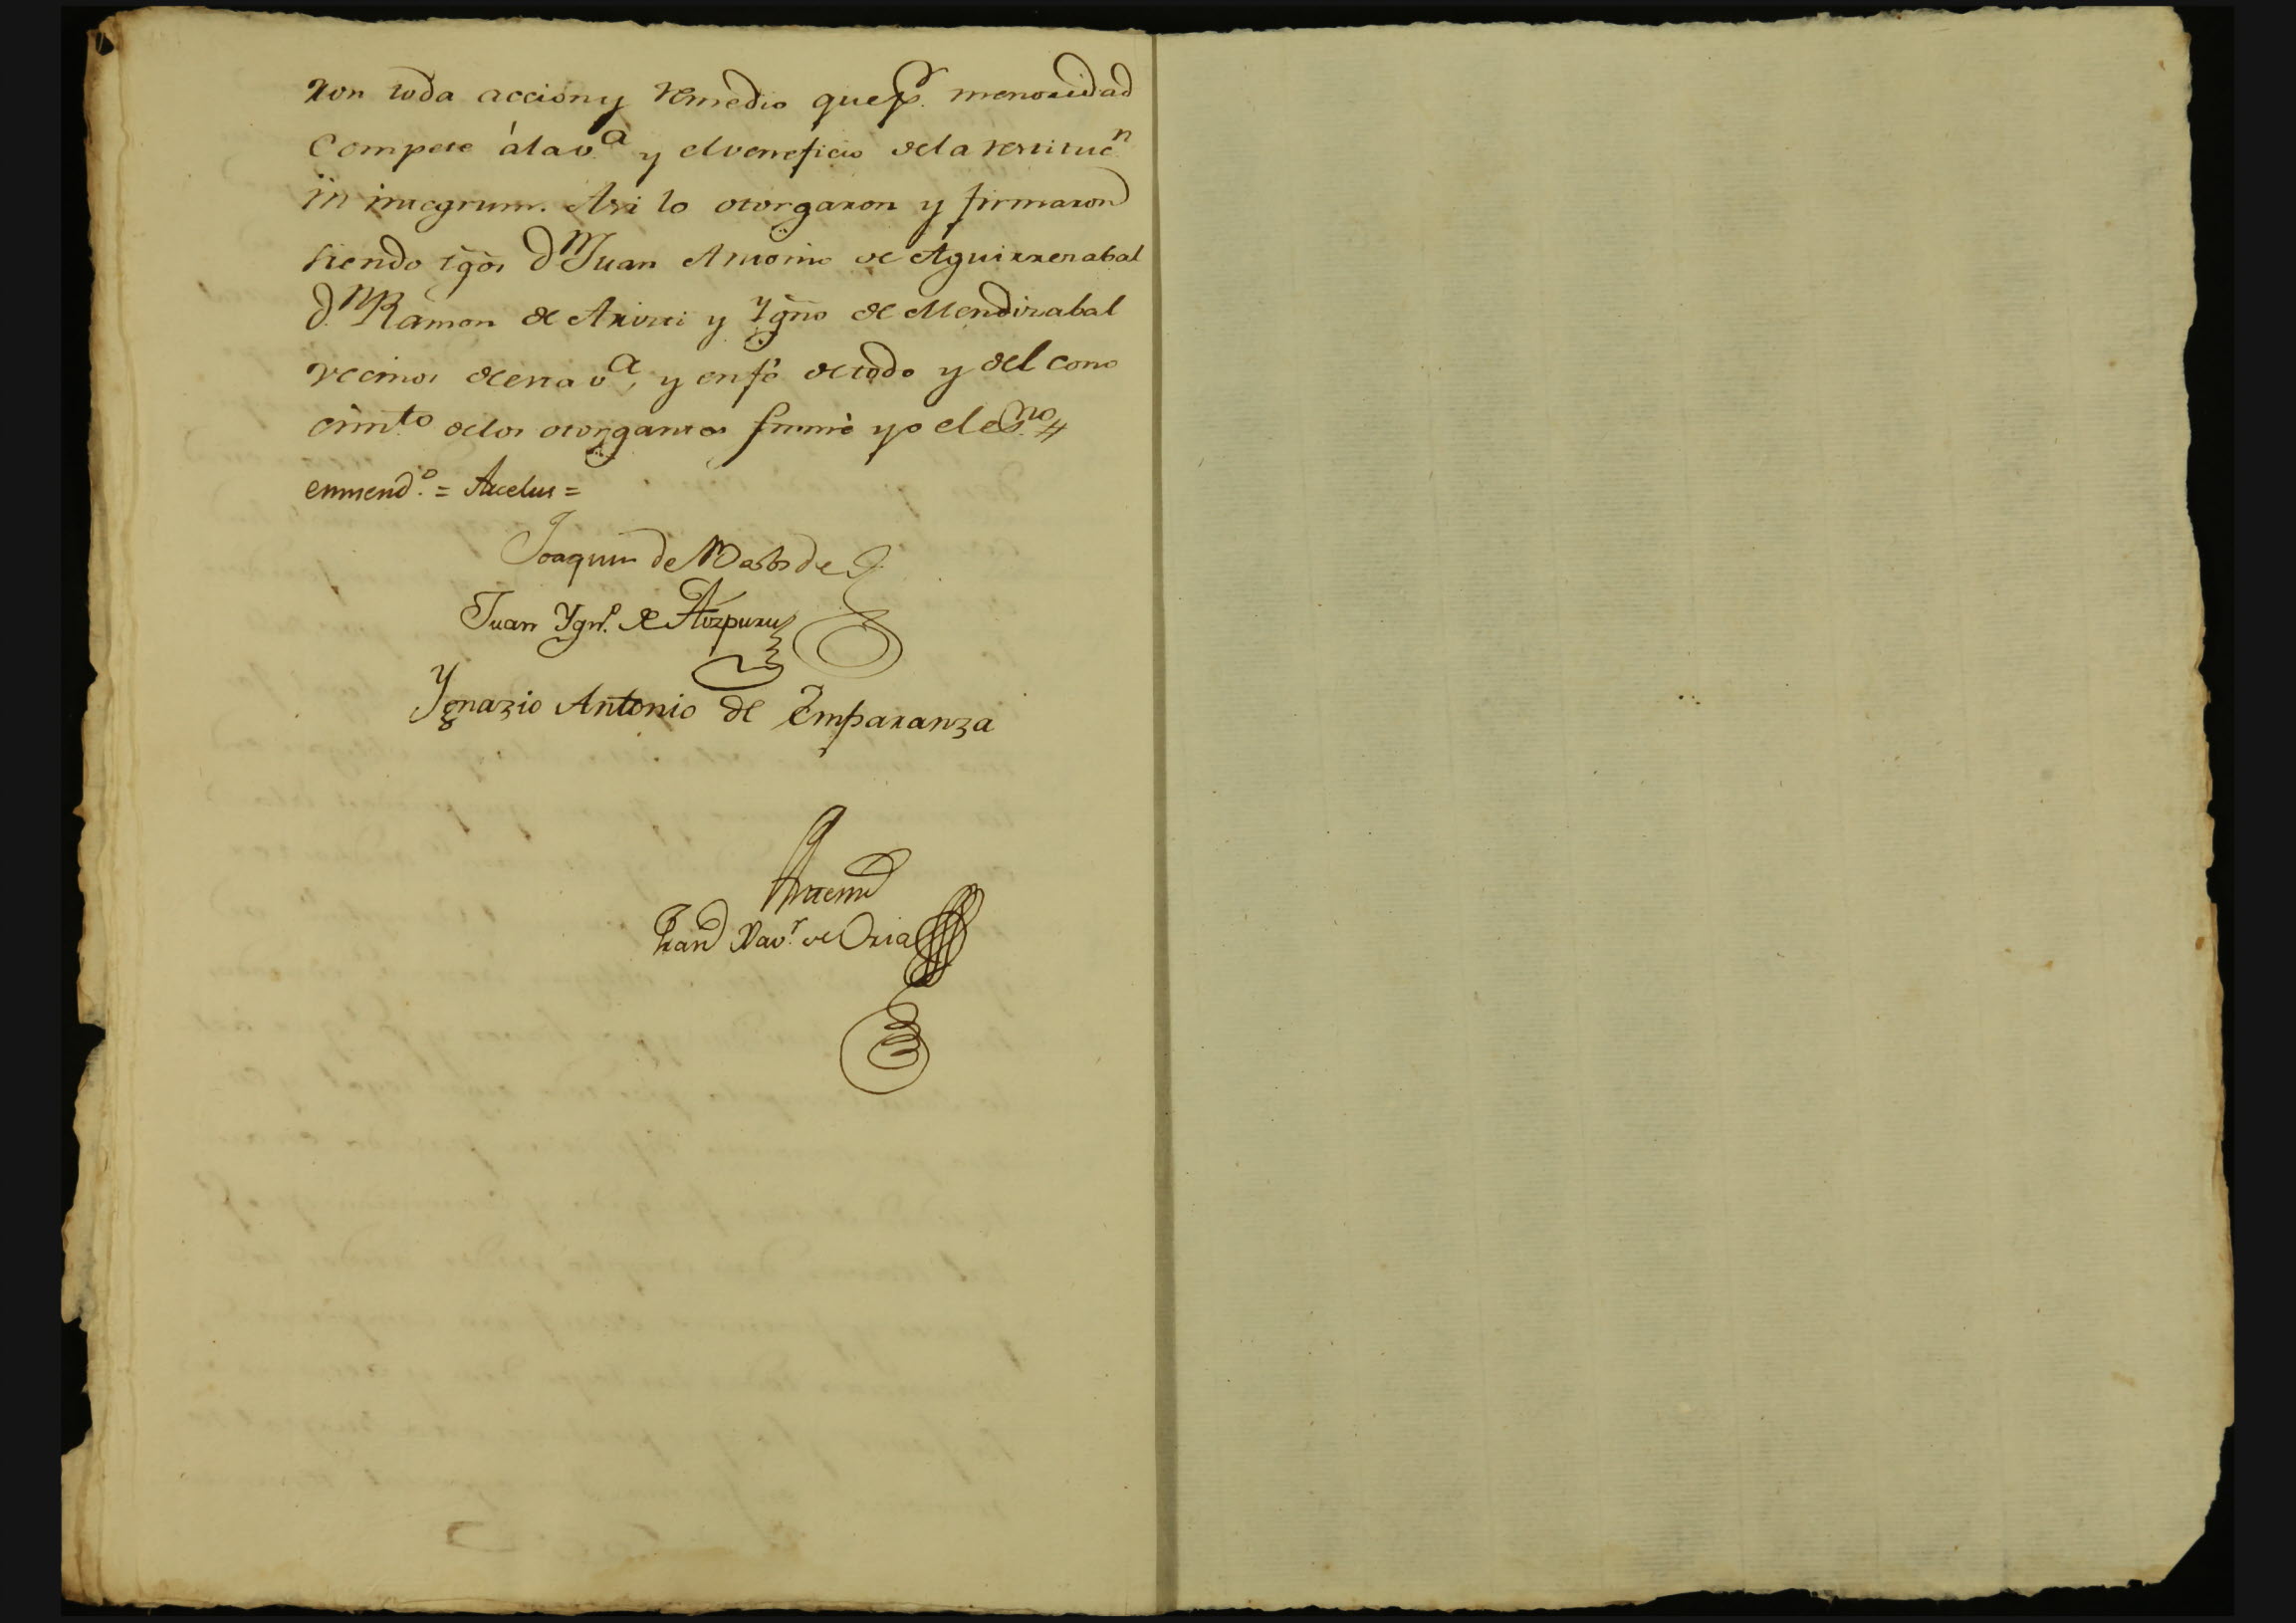 ron toda accion y remedio que p.r menoridad
Compete à la v.a y el veneficio de la restituc.n
in integrum. Asi lo otorgaron y firmaron
siendo tgos D.n Juan Antonio de Aguirrezabal
D.n Ramon de Arizti y Ygno de Mendizabal
vecinos de esta v.a, y en fé de todo y del cono
cim.to de los otorgantes firmè yo el es.no #
enmend.o = Arcelus =
Joaquin de
Juan Ygn.o de Aizpuru
Ygnazio Antonio de Emparanza
Antemi
Fran.co Xav.r de Oria